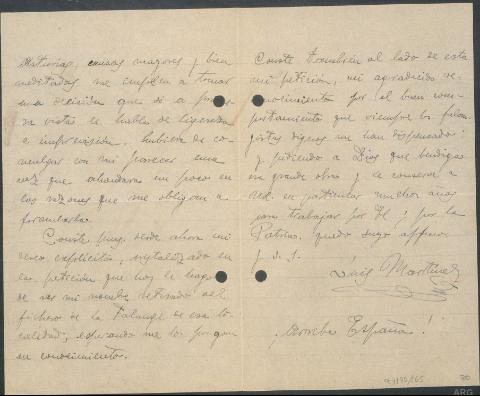 Asturias, causas mayores y bien
meditadas me impelen a tomar
una decisión que si a primera
vista se habla de ligereza
e imprevisión. hubiera de co-
mulgar con mi parecer una
vez que ahondara un poco en
las razones que me obligan a
formularla.
Conste pues, desde ahora mi
deseo explícito, cristalizado en
la petición que hoy le hago
de ser mi nombre retirado del
fichero de la Falange de esa lo-
calidad, esperando me lo pongan
en conocimiento.
Conste también al lado de esta
mi petición, mi agradecido re-
conocimiento por el buen com-
portamiento que siempre los falan-
gistas dignos me han dispensado:
y pidiendo a Dios que bendiga
esa grande obra y le conserve a
Vd. en particular muchos años
para trabajar por Él y por la
Patria. quedo suyo affmo
q. s. s.
Luis Martínez
¡Arriba España!
30
ARG